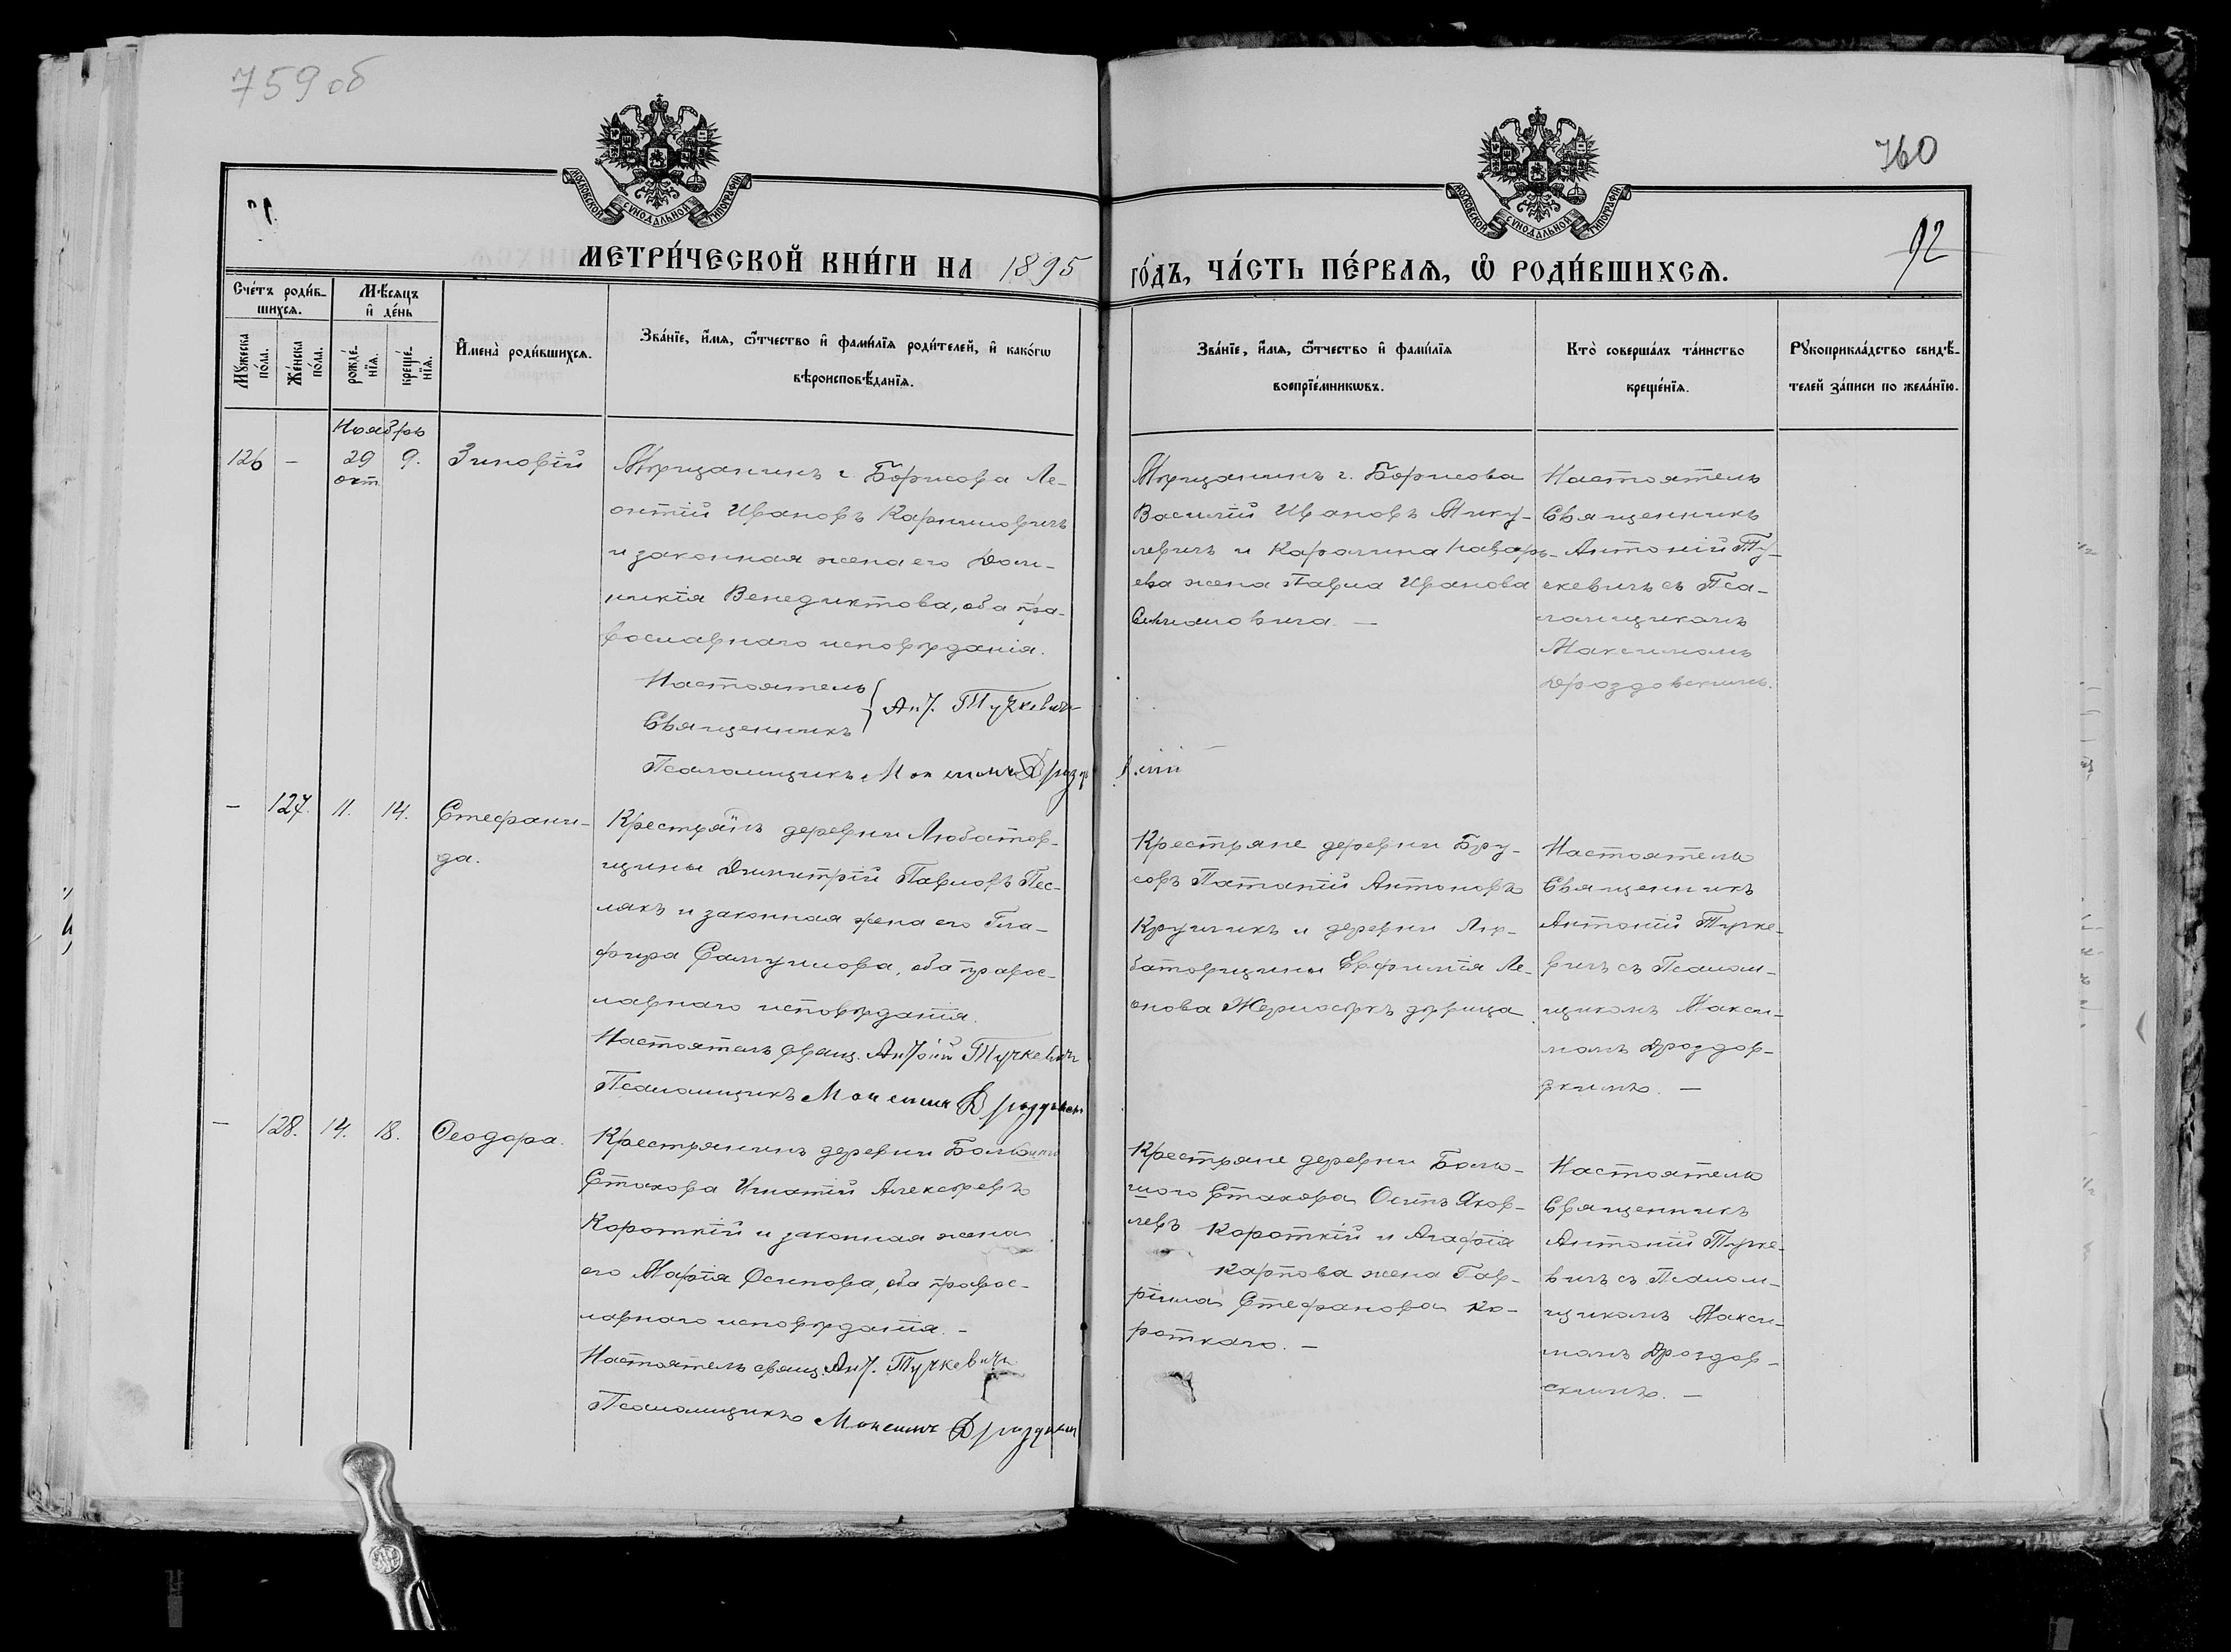 759 об
760
МОСКОВСКОЙ СѴНОДАЛЬНОЙ ТИПОГРАФІИ
МОСКОВСКОЙ СѴНОДАЛЬНОЙ ТИПОГРАФІИ
92
МЕТРИ́ЧЕСКОЙ КНИ́ГИ НА 1895
ГО́ДЪ, ЧА́СТЬ ПЕ́РВАЯ, Ѡ҆ РОДИ́ВШИХСѦ.
Сче́тъ роди́в-
шихсѧ.
Мѣ́сѧцъ
и҆ де́нь
Мꙋ́жеска
по́ла.
Же́нска
по́ла.
рожде́-
нїѧ.
креще́-
нїѧ.
И҆мена̀ роди́вшихсѧ.
Зва́нїе, и҆́мѧ, ѻ҆́тчество и҆ фами́лїѧ роди́телей, и҆ како́гѡ
вѣроисповѣ́данїѧ.
Зва́нїе, и҆́мѧ, ѻ҆́тчество и҆ фами́лїѧ
воспрїе́мникѡвъ.
Кто̀ соверша́лъ та́инство
креще́нїѧ.
Рꙋкоприкла́дство свидѣ́-
телей за́писи по жела́нїю.
Ноябрь
126 – 29 9. Зиновій
окт.
Мѣщанинъ г. Борисова Ле-
онтій Ивановъ Карниловичъ
и законная жена его Доми-
никія Венедиктова, оба пра-
вославнаго исповѣданія.
Настоятель
Священникъ } Ант. Тучкевичъ
Псаломщикъ Максимъ Дроздовскій
Мѣщанинъ г. Борисова
Василій Ивановъ Мику-
левичъ и Каролина
жена Павла Иванова
Настоятель
Священникъ
Антоній Ту-
чкевичъ съ Пса-
ломщикомъ
Максимомъ
Дроздовскимъ.
– 127. 11. 14. Стефани-
да.
Крестьянъ деревни Любатов-
щины Димитрій Павловъ Пес-
лякъ и законная жена его Гла-
фира Самуилова, оба правос-
лавнаго исповѣданія.
Настоятель свящ. Антоній Тучкевичъ
Псаломщикъ Максимъ Дроздовскій
Крестьяне деревни Бру-
совъ Потапій Антоновъ
Кручикъ и деревни Лю-
батовщины Евфимія Ле-
онова Жерносѣкъ дѣвица.
Настоятель
Священникъ
Антоній Тучке-
вичъ съ Псалом-
щикомъ Макси-
момъ Дроздов-
скимъ. –
– 128. 14. 18. Ѳеодора.
Крестьянинъ деревни Больш
Стахова Игнатій Алексѣевъ
Короткій и законная жена
его Марія Осипова, оба правос-
лавнаго исповѣданія. –
Настоятель свящ. Ант. Тучкевичъ
Псаломщикъ Максимъ Дроздовскій
Крестьяне деревни Боль-
шого Стахова Осипъ Яков-
левъ Короткій и Агафія
Карпова жена Гав-
ріила Стефанова Ко-
роткаго. –
Настоятель
Священникъ
Антоній Тучке-
вичъ съ Псалом-
щикомъ Макси-
момъ Дроздов-
скимъ. –